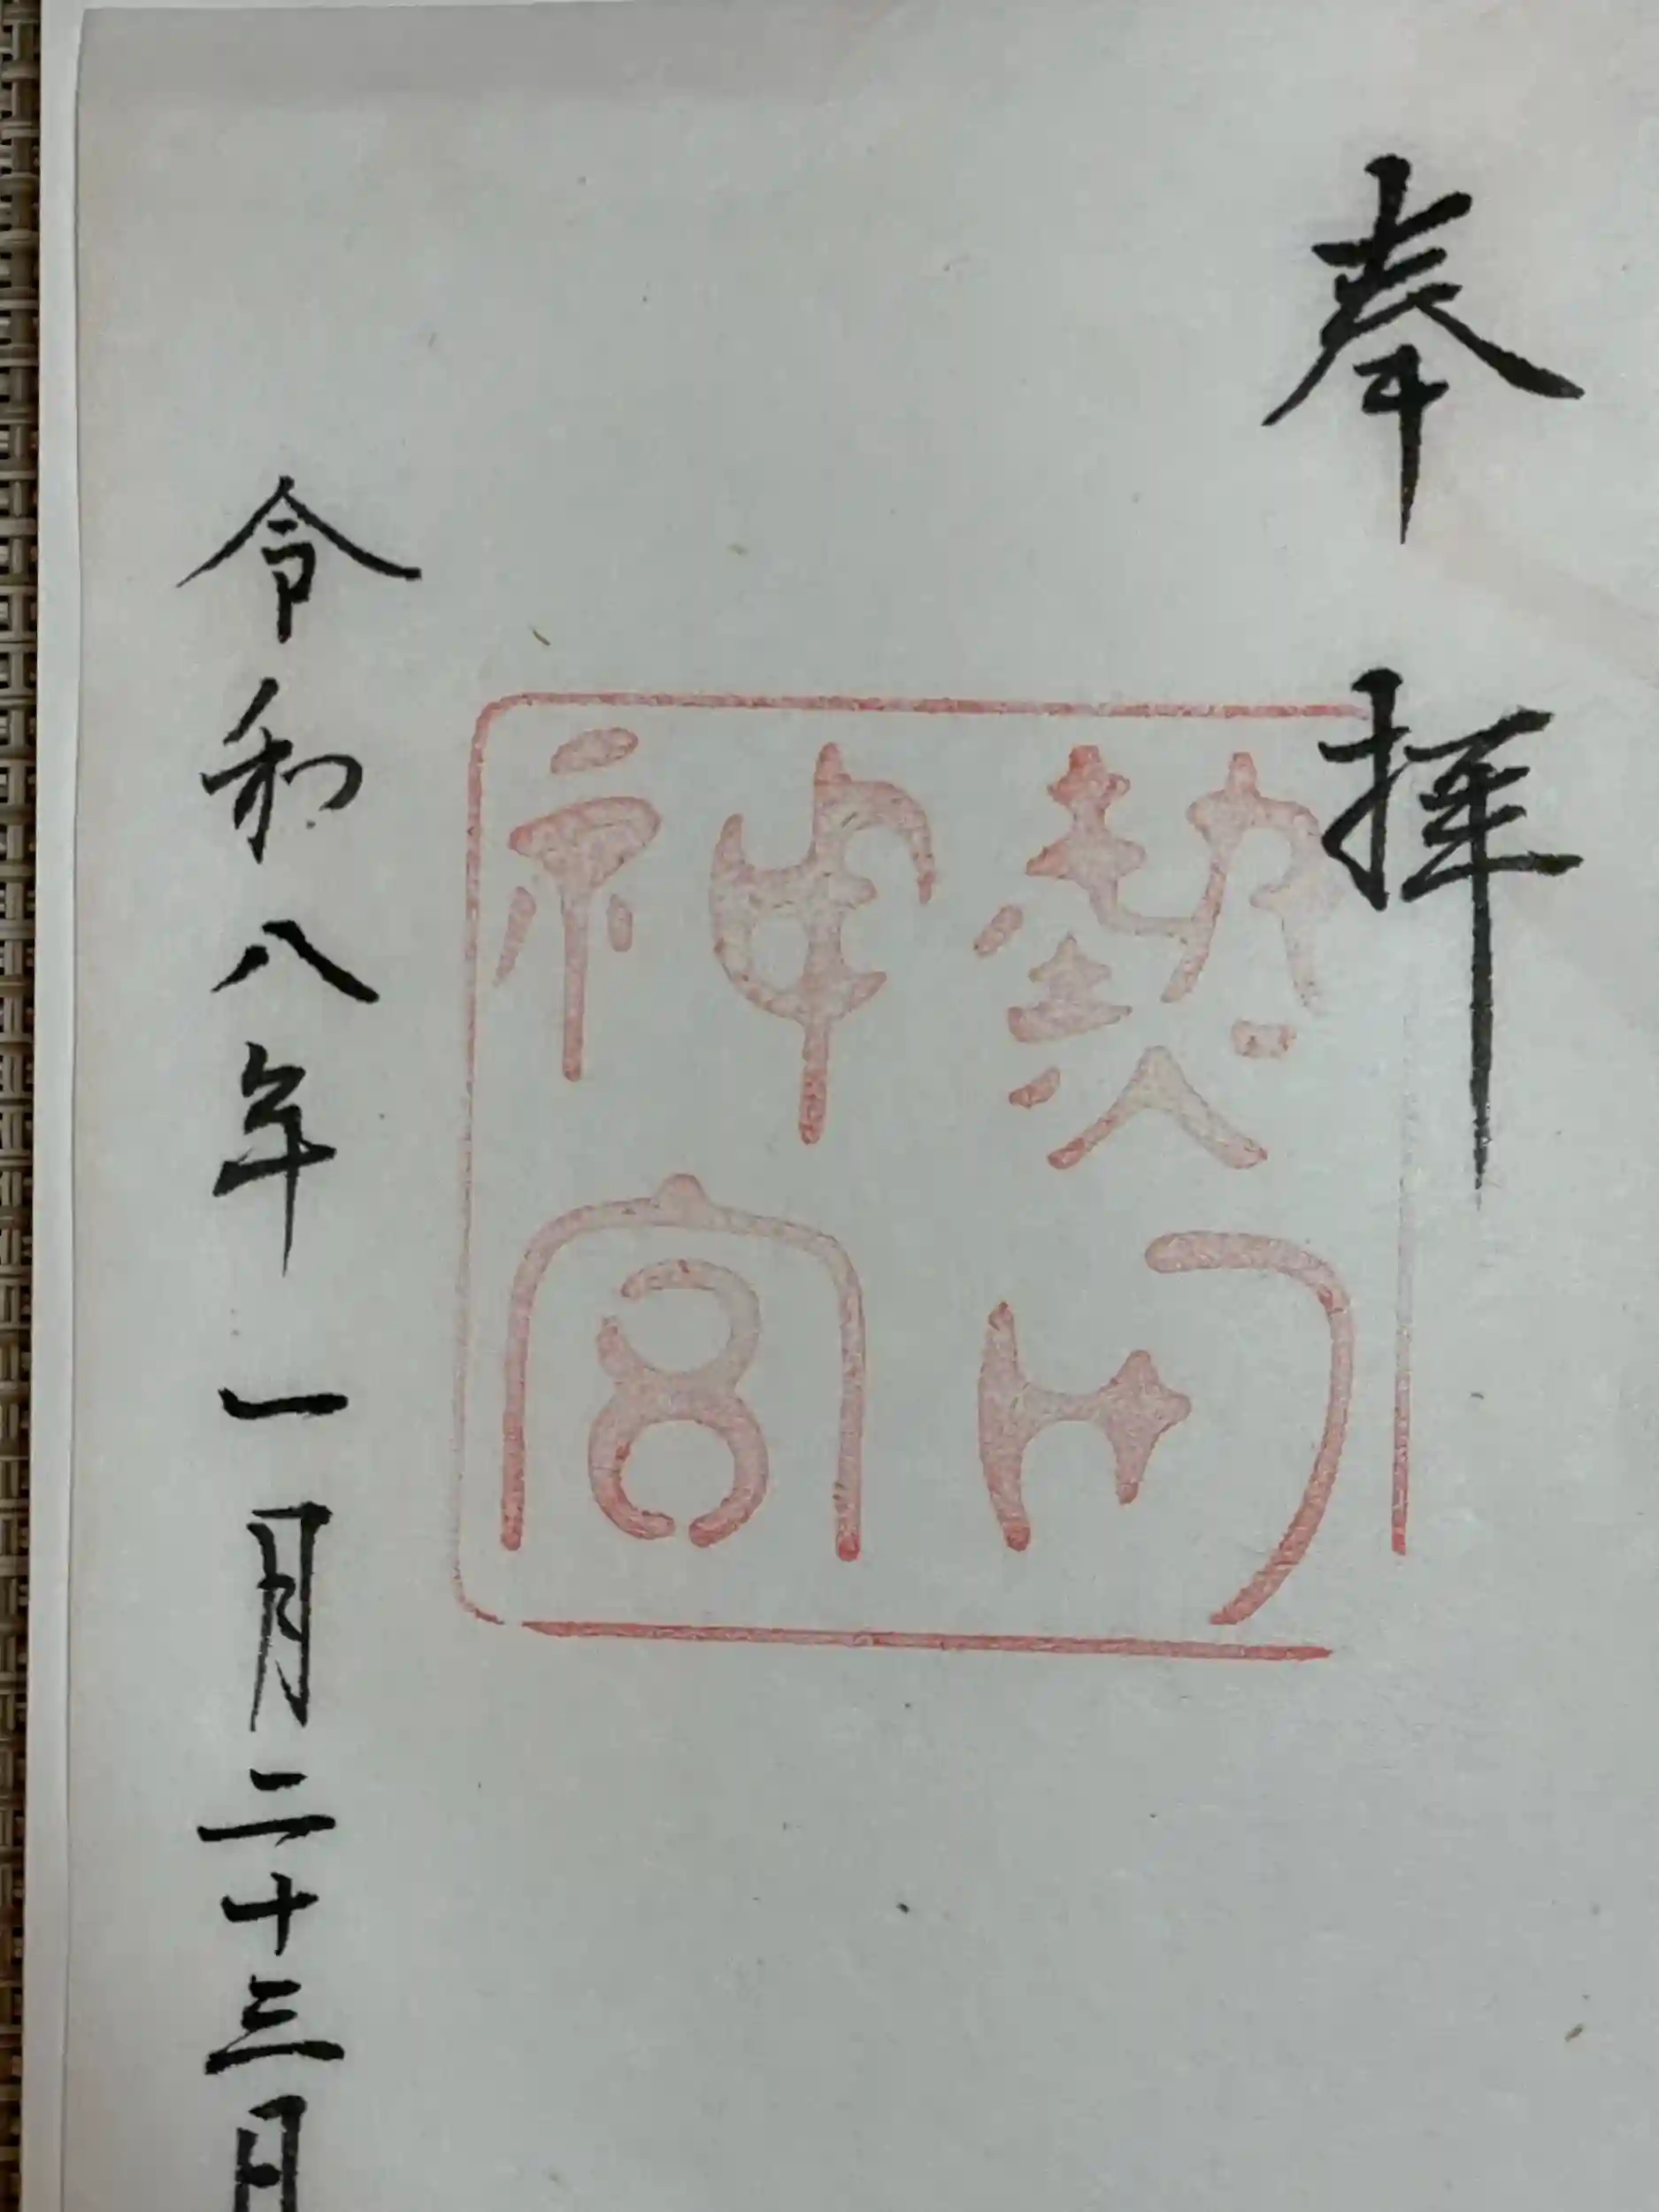 奉拝
熱田神宮
令和八年一月二十三日